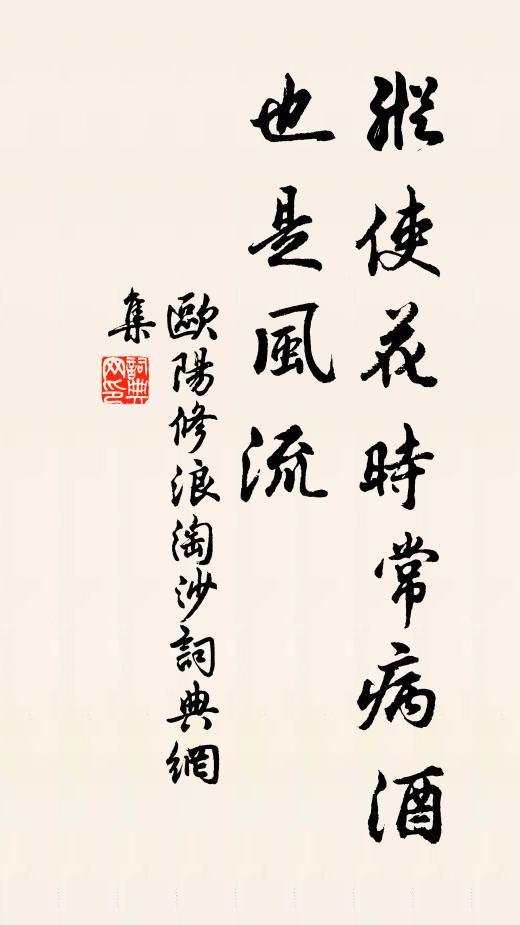 縱使花時常病酒
也是風流
歐陽修浪淘沙詞典網
集
詞典
网印